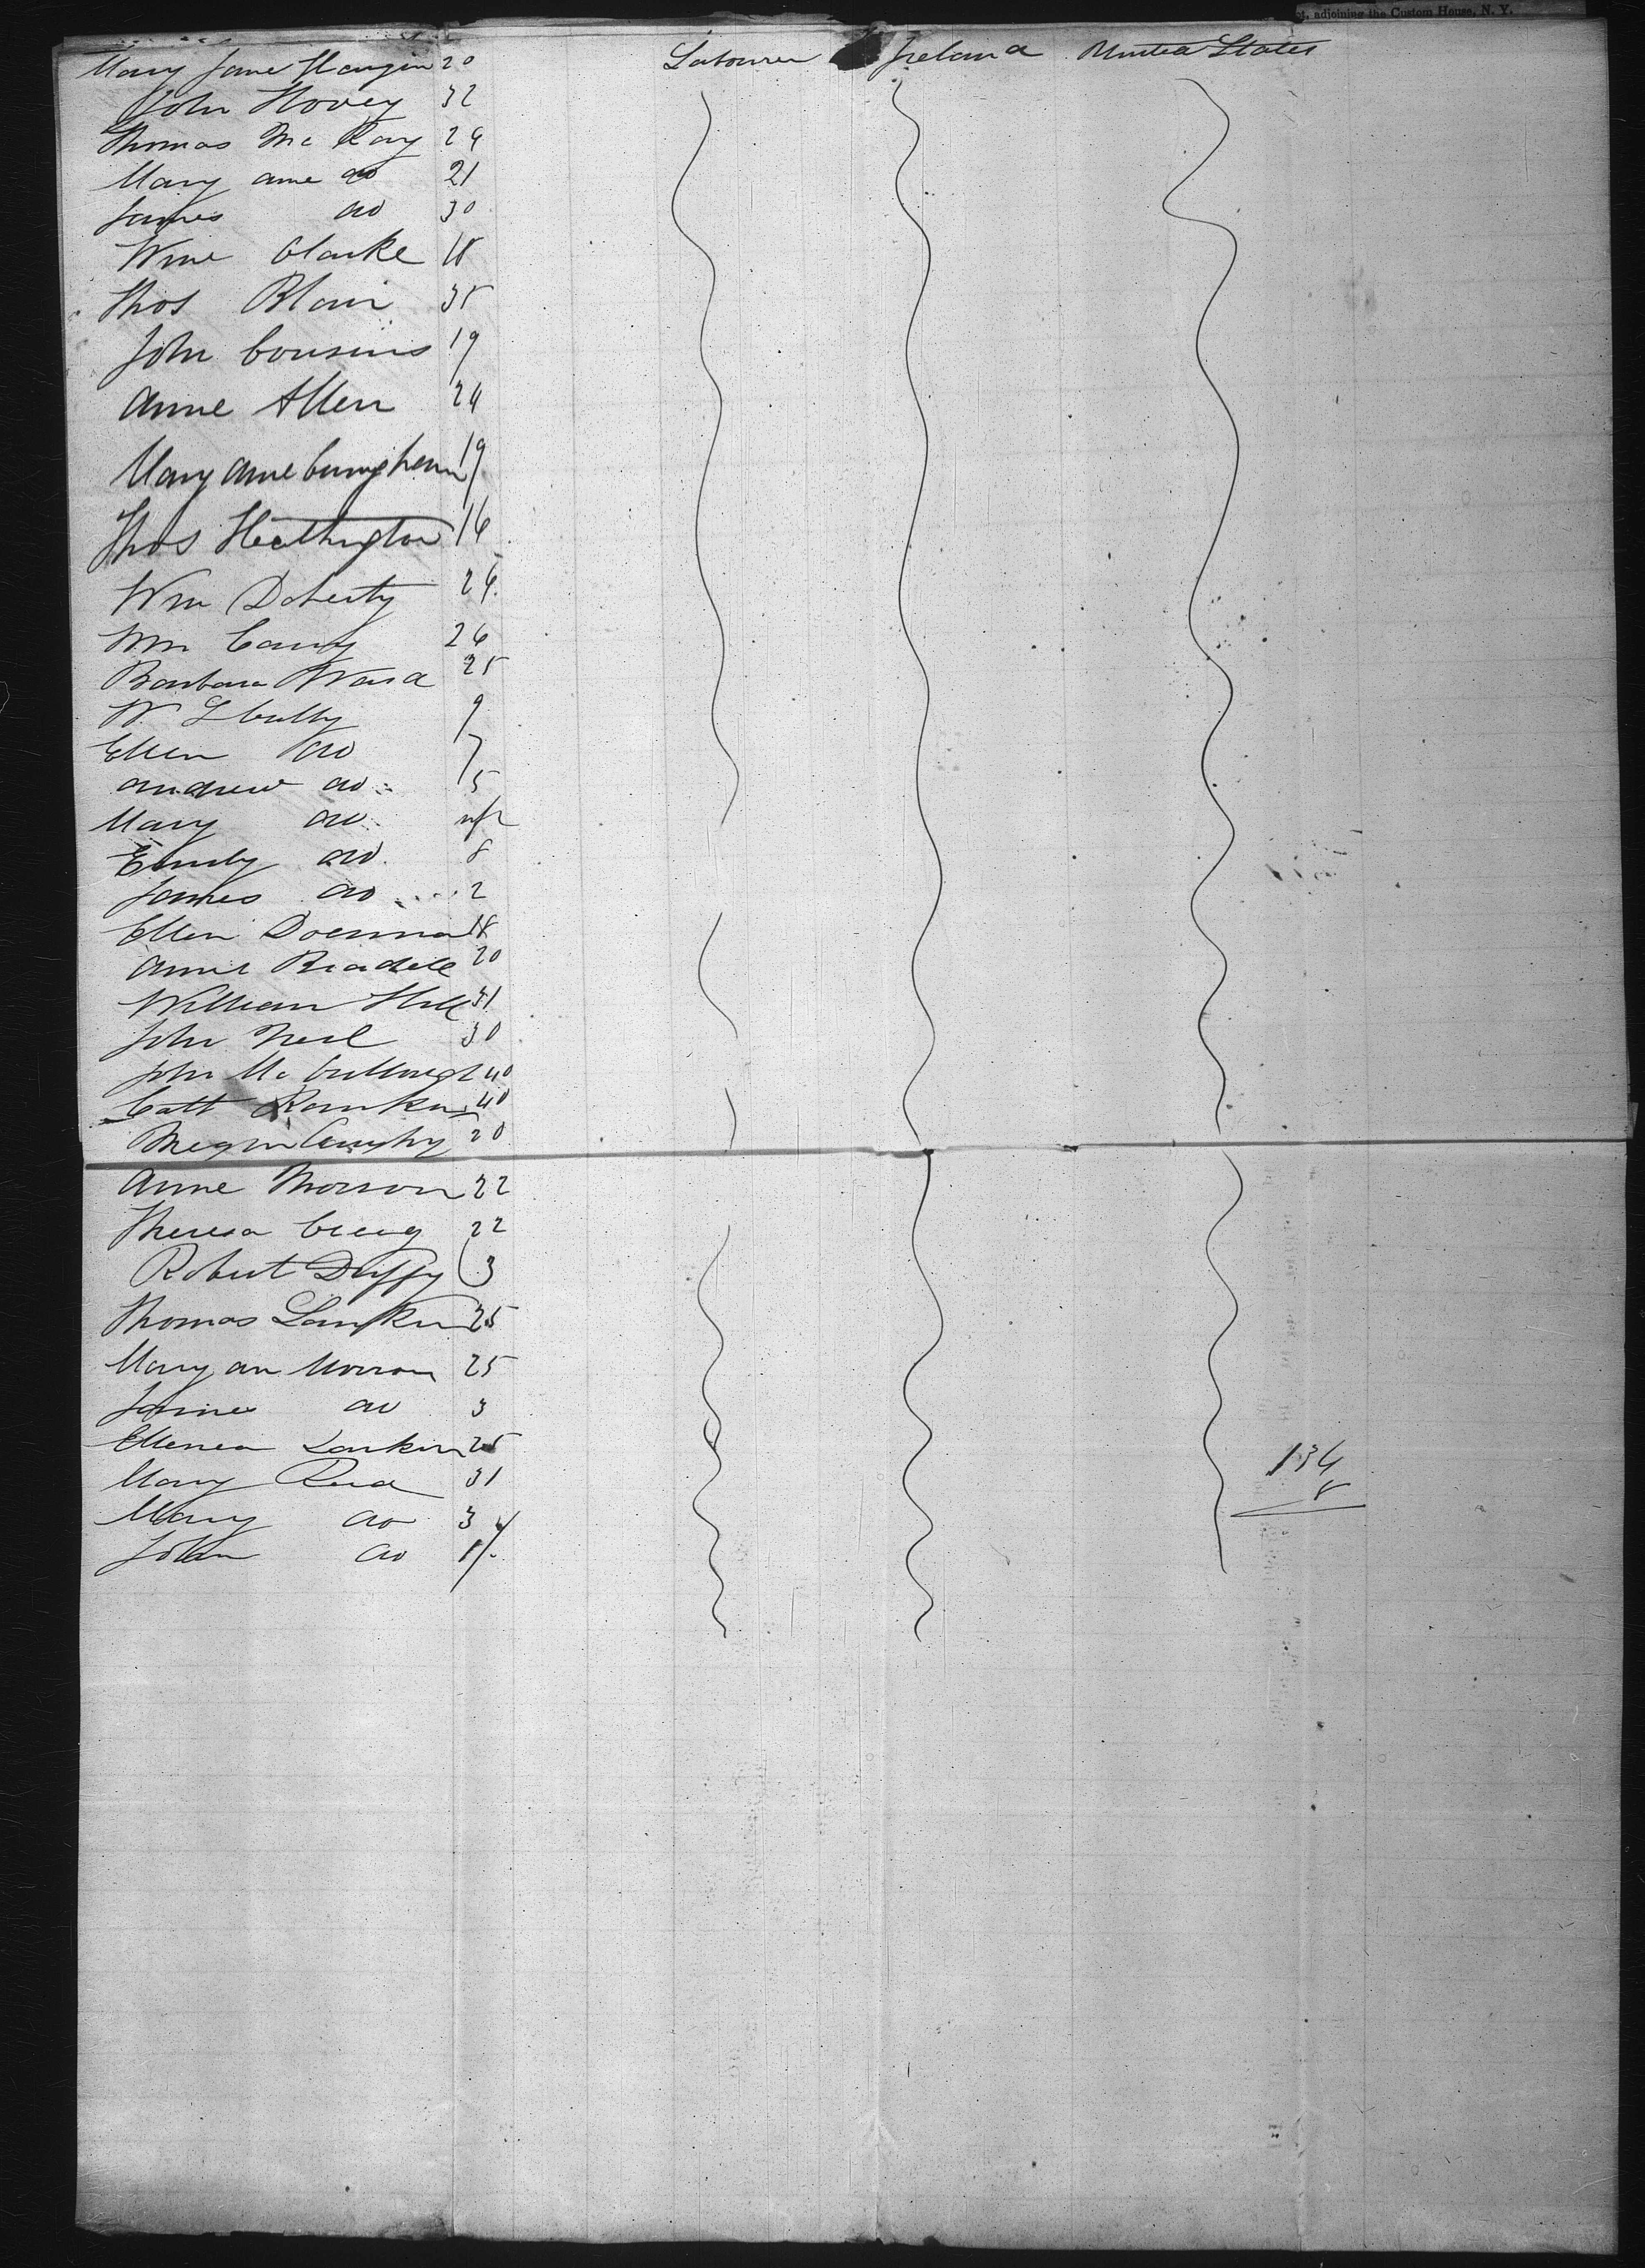 adjoining the Custom House, N. Y.
Mary Jane 20 Labourer Ireland United States
John Hovey 32
Thomas Mc Kay 24
Mary anne do 21
James do 30
Wme Clarke 18
Thos Blair 35
John Cousins 19
Anne Allen 24
Mary anne 19
Thos Heathington 16
Wm Doherty 26
Wm 26
Barbara Ward 25
W. 9
Ellen do 7
andrew do 5
Mary do inft
Emily do 8
James do 2
Ellen 18
Anne 20
William Hill 31
John Neil 30
John Mc Cullough 40
Catt Rankin 40
20
Anne Morson 22
Theresa 22
Robert Duffy 3
Thomas Larkin 25
Mary an 25
James do 3
Larkin 25
Mary Reid 31
Mary do 3
John do 1
134
8